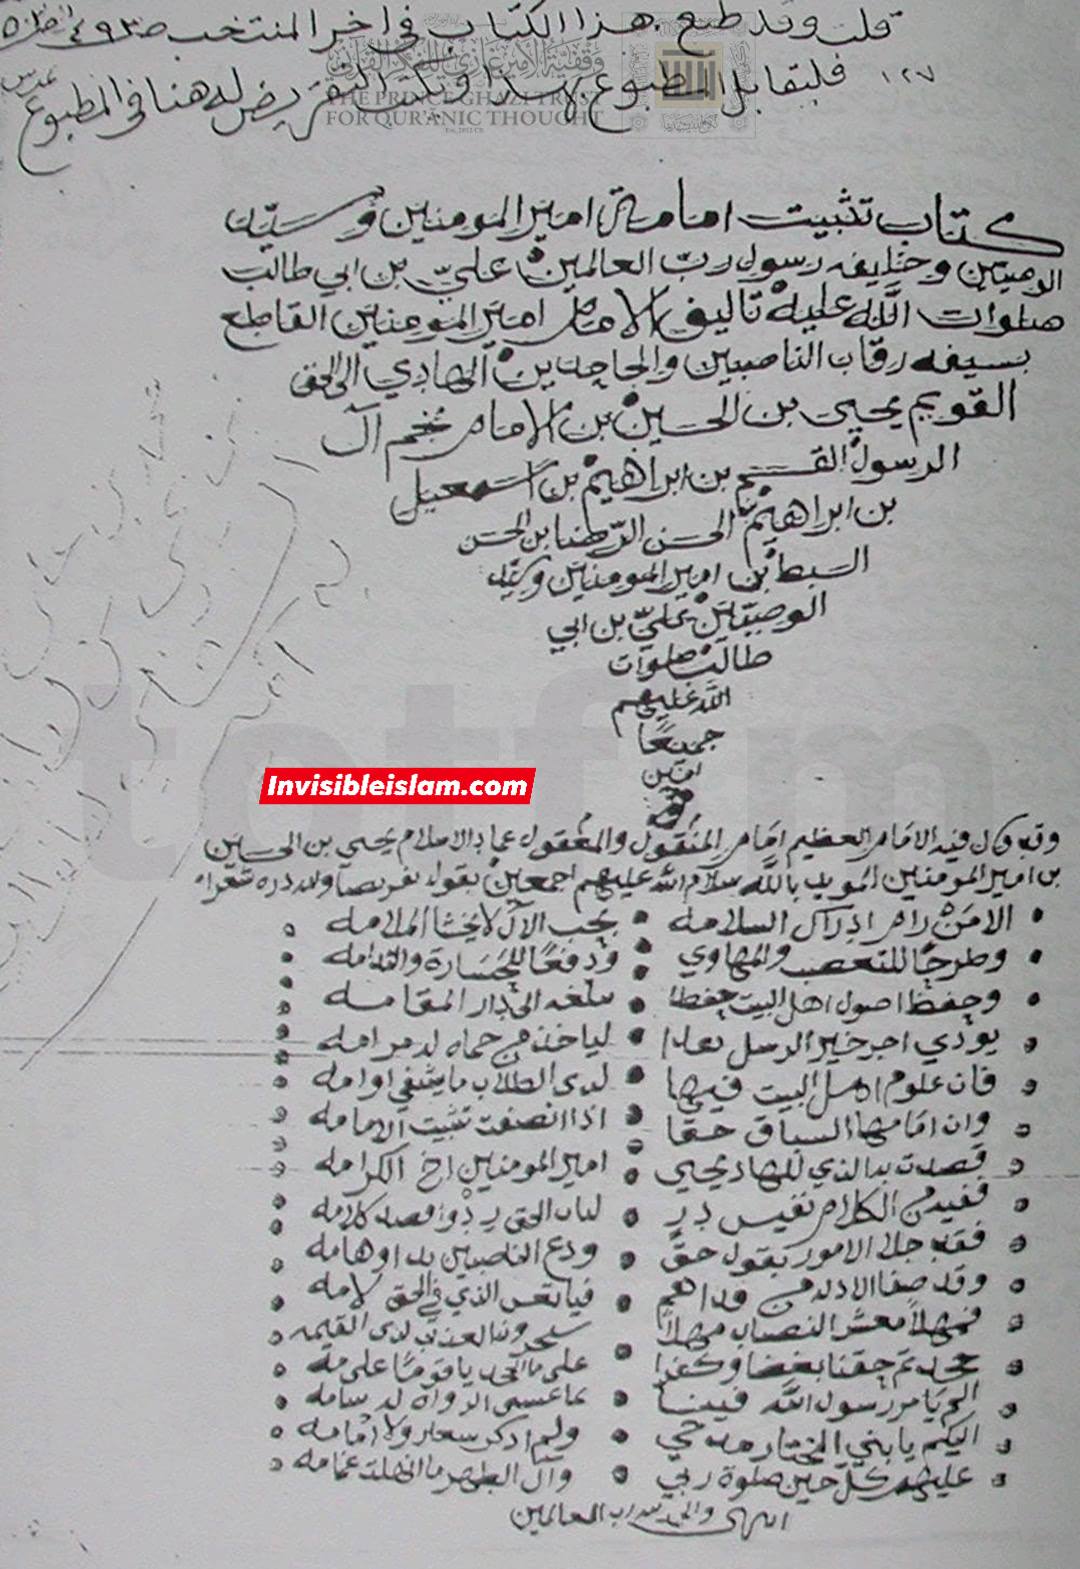 قلت وقد طبع هذا الكتاب في اخر المنتخب ص ٤٩٣
١٢٧ فليقابل المطبوع بهذا ويكتب التقريض له هنا في المطبوع
وقفية الأمير غازي للفكر القرآني
THE PRINCE GHAZI TRUST
FOR QUR'ANIC THOUGHT
كتاب تثبيت امامة امير المومنين وسيد
الوصيين وخليفه رسول رب العالمين علي بن ابي طالب
صلوات الله عليه تاليف الامام امير المومنين القاطع
بسيفه رقاب الناصبين والجاحدين الهادي الى الحق
القويم يحيى بن الحسين بن الامام نجم آل
الرسول القسم بن ابراهيم بن اسمعيل
بن ابراهيم بن الحسن الرضا بن الحسن
السبط بن امير المومنين وسيد
الوصيين علي بن ابي
طالب صلوات
الله عليهم
جميعا
امين
Invisibleislam.com
totfim
وقد قال فيه الامام العظيم امام المنقول والمعقول عماد الاسلام يحيى بن الحسين
بن امير المومنين المويد بالله سلام الله عليهم اجمعين بقوله تقريضا ولله دره شعرا
الا من رام ادراك السلامه بحب الآل لا يخشا الملامه
وطرحا للتعصب والمهاوي ودفعا للجسارة والندامه
وحفظ اصول اهل البيت حفظا يبلغه الى دار المقامه
يودي اجر خير الرسل هذا لياخذ من حماه لد مرامه
فان علوم اهل البيت فيها لدى الطلاب ما يشفي اوامه
وان امامها السباق حقا اذا انصفت تثبيت الامامه
قصدت بذا الذي للهاد يحيى امير المومنين اخ الكرامه
ففيه من الكلام نفيس در لباب الحق يردوا قصد كلامه
فقد جلا الامور بقول حق ودع الناصبين بد اوهامه
وقد صفا الادله من فيا تعس الذي في الحق لامه
فمهلا معشر النصاب مهلا ستجزون العذب لدى القيمه
جحدتم حقنا بغضا وكفرا على ماذا يا قوما على مه
الم يامر رسول الله فينا بما عسى الرواة
اليكم يا بني المختار مدحي ولم اذكر سعاد ولا امامه
عليهم كل حين صلوة ربي وآل الطهر ما انهلت غمامه
انتهى والحمد لله رب العالمين